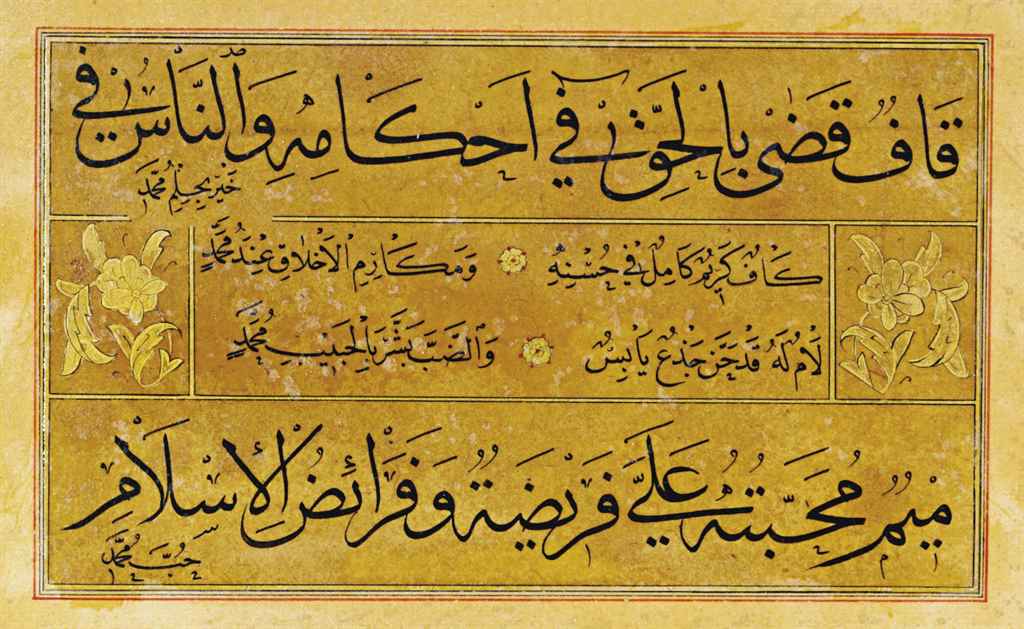 قَافٌ قَضٰى بِالْحَقِّ فِي اَحْكَامِهِ وَالنَّاسُ فِي
خَيْرٍ بِحِلْمِ مُحَمَّدٍ
كَافٌ كَرِيمٌ كَامِلٌ فِي حُسْنِهِ وَمَكَارِمُ الْاَخْلَاقِ عِنْدَ مُحَمَّدٍ
لَامٌ لَهُ قَدْ حَنَّ جِذْعٌ يَابِسٌ وَالضَّبُّ بَشَّرَ بِالْحَبِيبِ مُحَمَّدٍ
مِيمٌ مَحَبَّتُهُ عَلَيَّ فَرِيضَةٌ وَفَرَائِضُ الْإِسْلَامِ
حُبُّ مُحَمَّدٍ